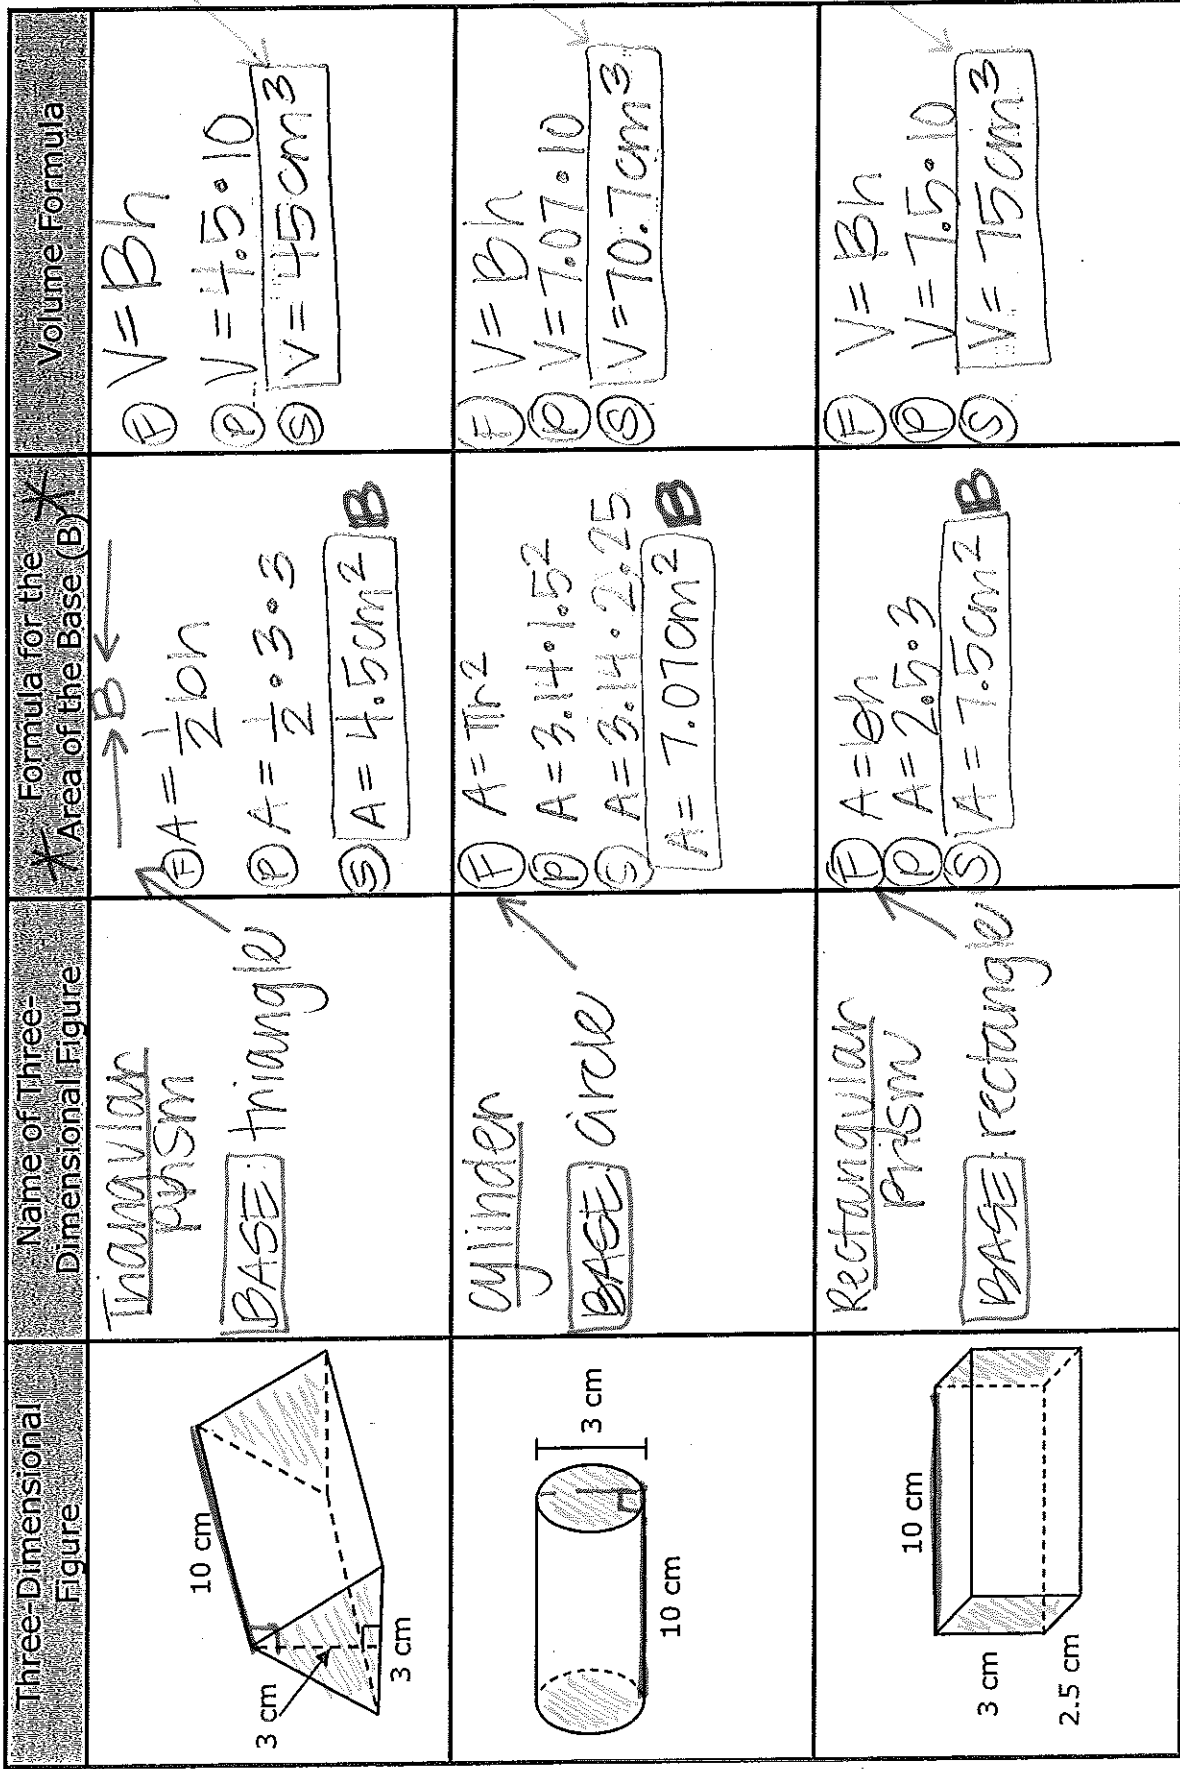 Three-Dimensional
Figure
Name of Three-
Dimensional Figure
Formula for the
Area of the Base (B)
Volume Formula
10 cm
3 cm
3 cm
Triangular
prism
BASE: triangle
B
F A = 1/2 bh
P A = 1/2 • 3 • 3
S A = 4.5 cm² B
F V = Bh
P V = 4.5 • 10
S V = 45 cm³
3 cm
10 cm
cylinder
BASE: circle
F A = πr²
P A = 3.14 • 1.5²
S A = 3.14 • 2.25
A = 7.07 cm² B
F V = Bh
P V = 7.07 • 10
S V = 70.7 cm³
10 cm
3 cm
2.5 cm
Rectangular
Prism
BASE: rectangle
F A = bh
P A = 2.5 • 3
S A = 7.5 cm² B
F V = Bh
P V = 7.5 • 10
S V = 75 cm³